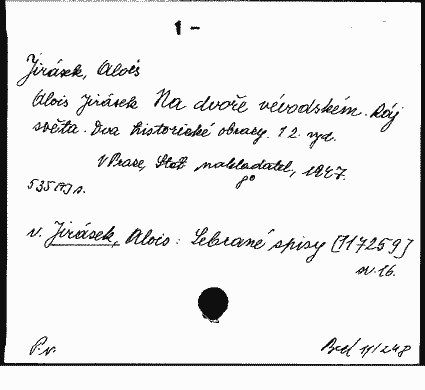 1 -
Jirásek, Alois
Alois Jirásek Na dvoře vévodském. Ráj
světa. Dva historické obrazy. 12. vyd.
V Praze, nakladatel, 1947.
v. Jirásek, Alois: Sebrané spisy [117259]
sv. 16.
P. v.